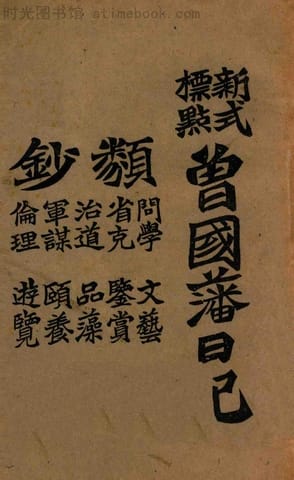 时光图书馆 - stimebook.com
新式
標點
曾國藩日己
類鈔
問學 文藝
省克 鑒賞
治道 品藻
軍謀 頤養
倫理 遊覽